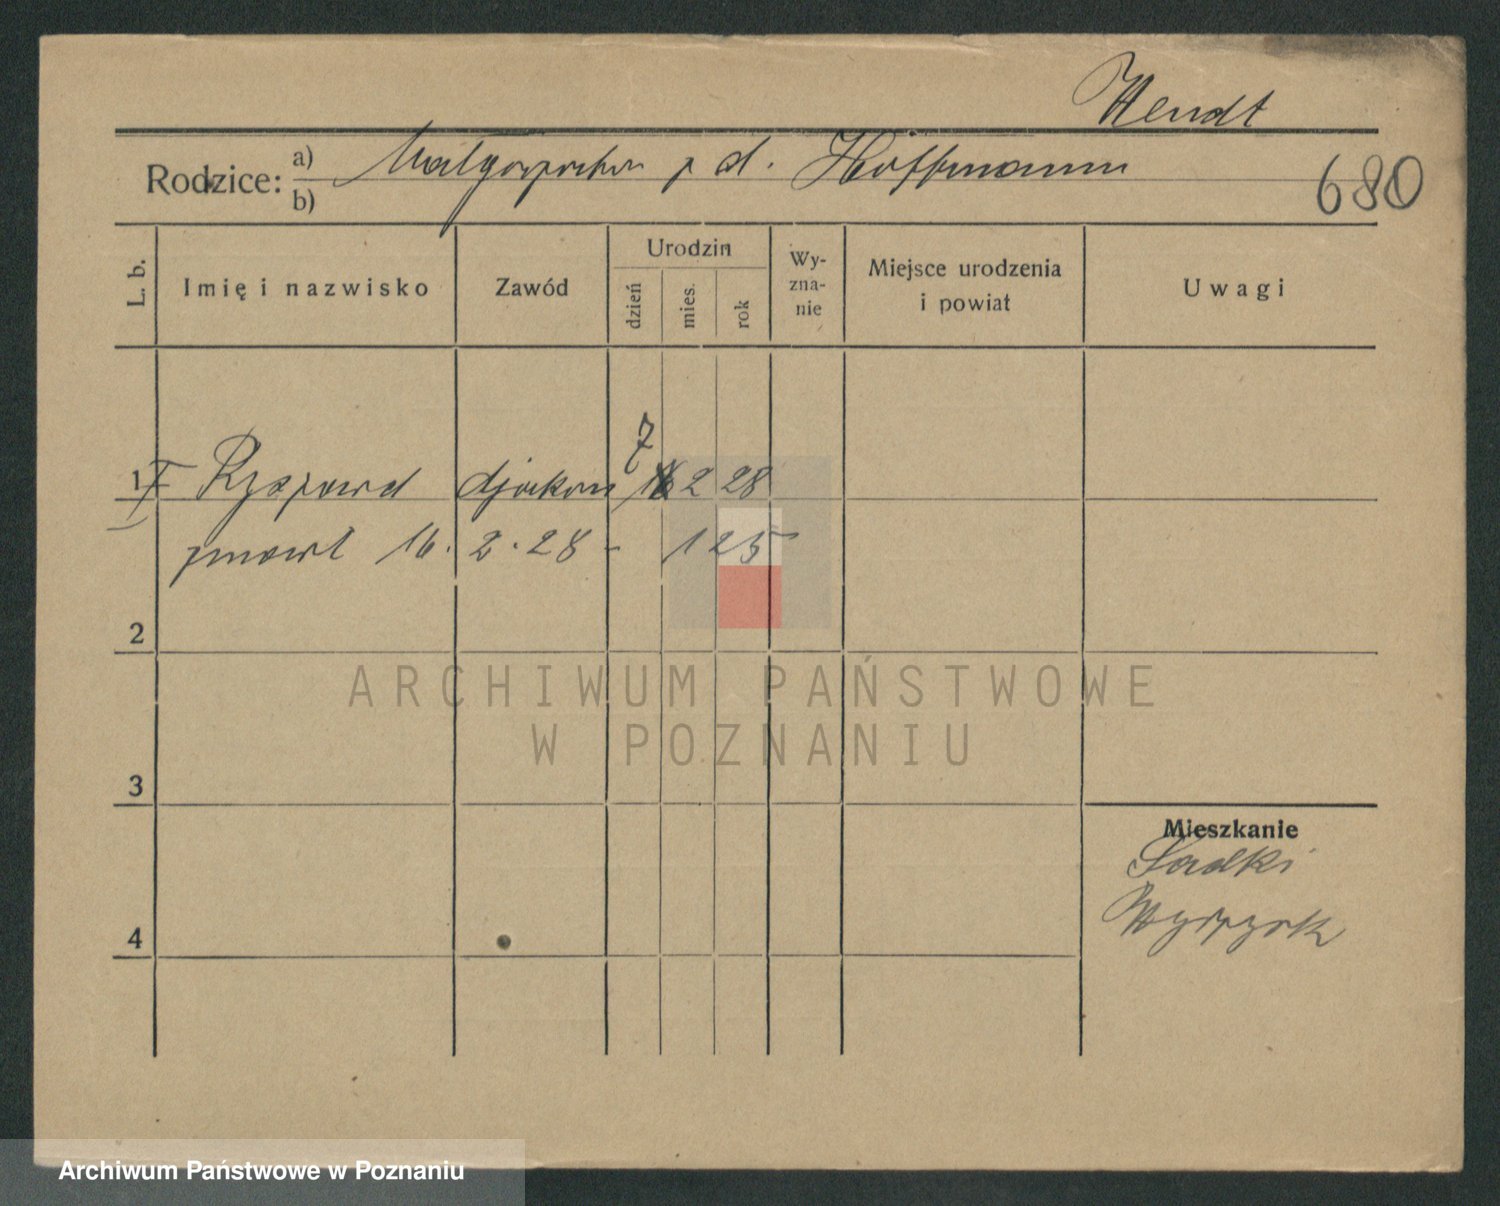 Wendt
Rodzice: a) Małgorzata z d. Hoffmann
b)
680
L. b.
Imię i nazwisko
Zawód
Urodzin
dzień
mies.
rok
Wy-
zna-
nie
Miejsce urodzenia
i powiat
Uwagi
1 Ryszard djakon 7 2 28
zmarł 16. 2. 28 - 125
2
3
4
Mieszkanie
Sadki
Wyrzysk
ARCHIWUM PAŃSTWOWE
W POZNANIU
Archiwum Państwowe w Poznaniu